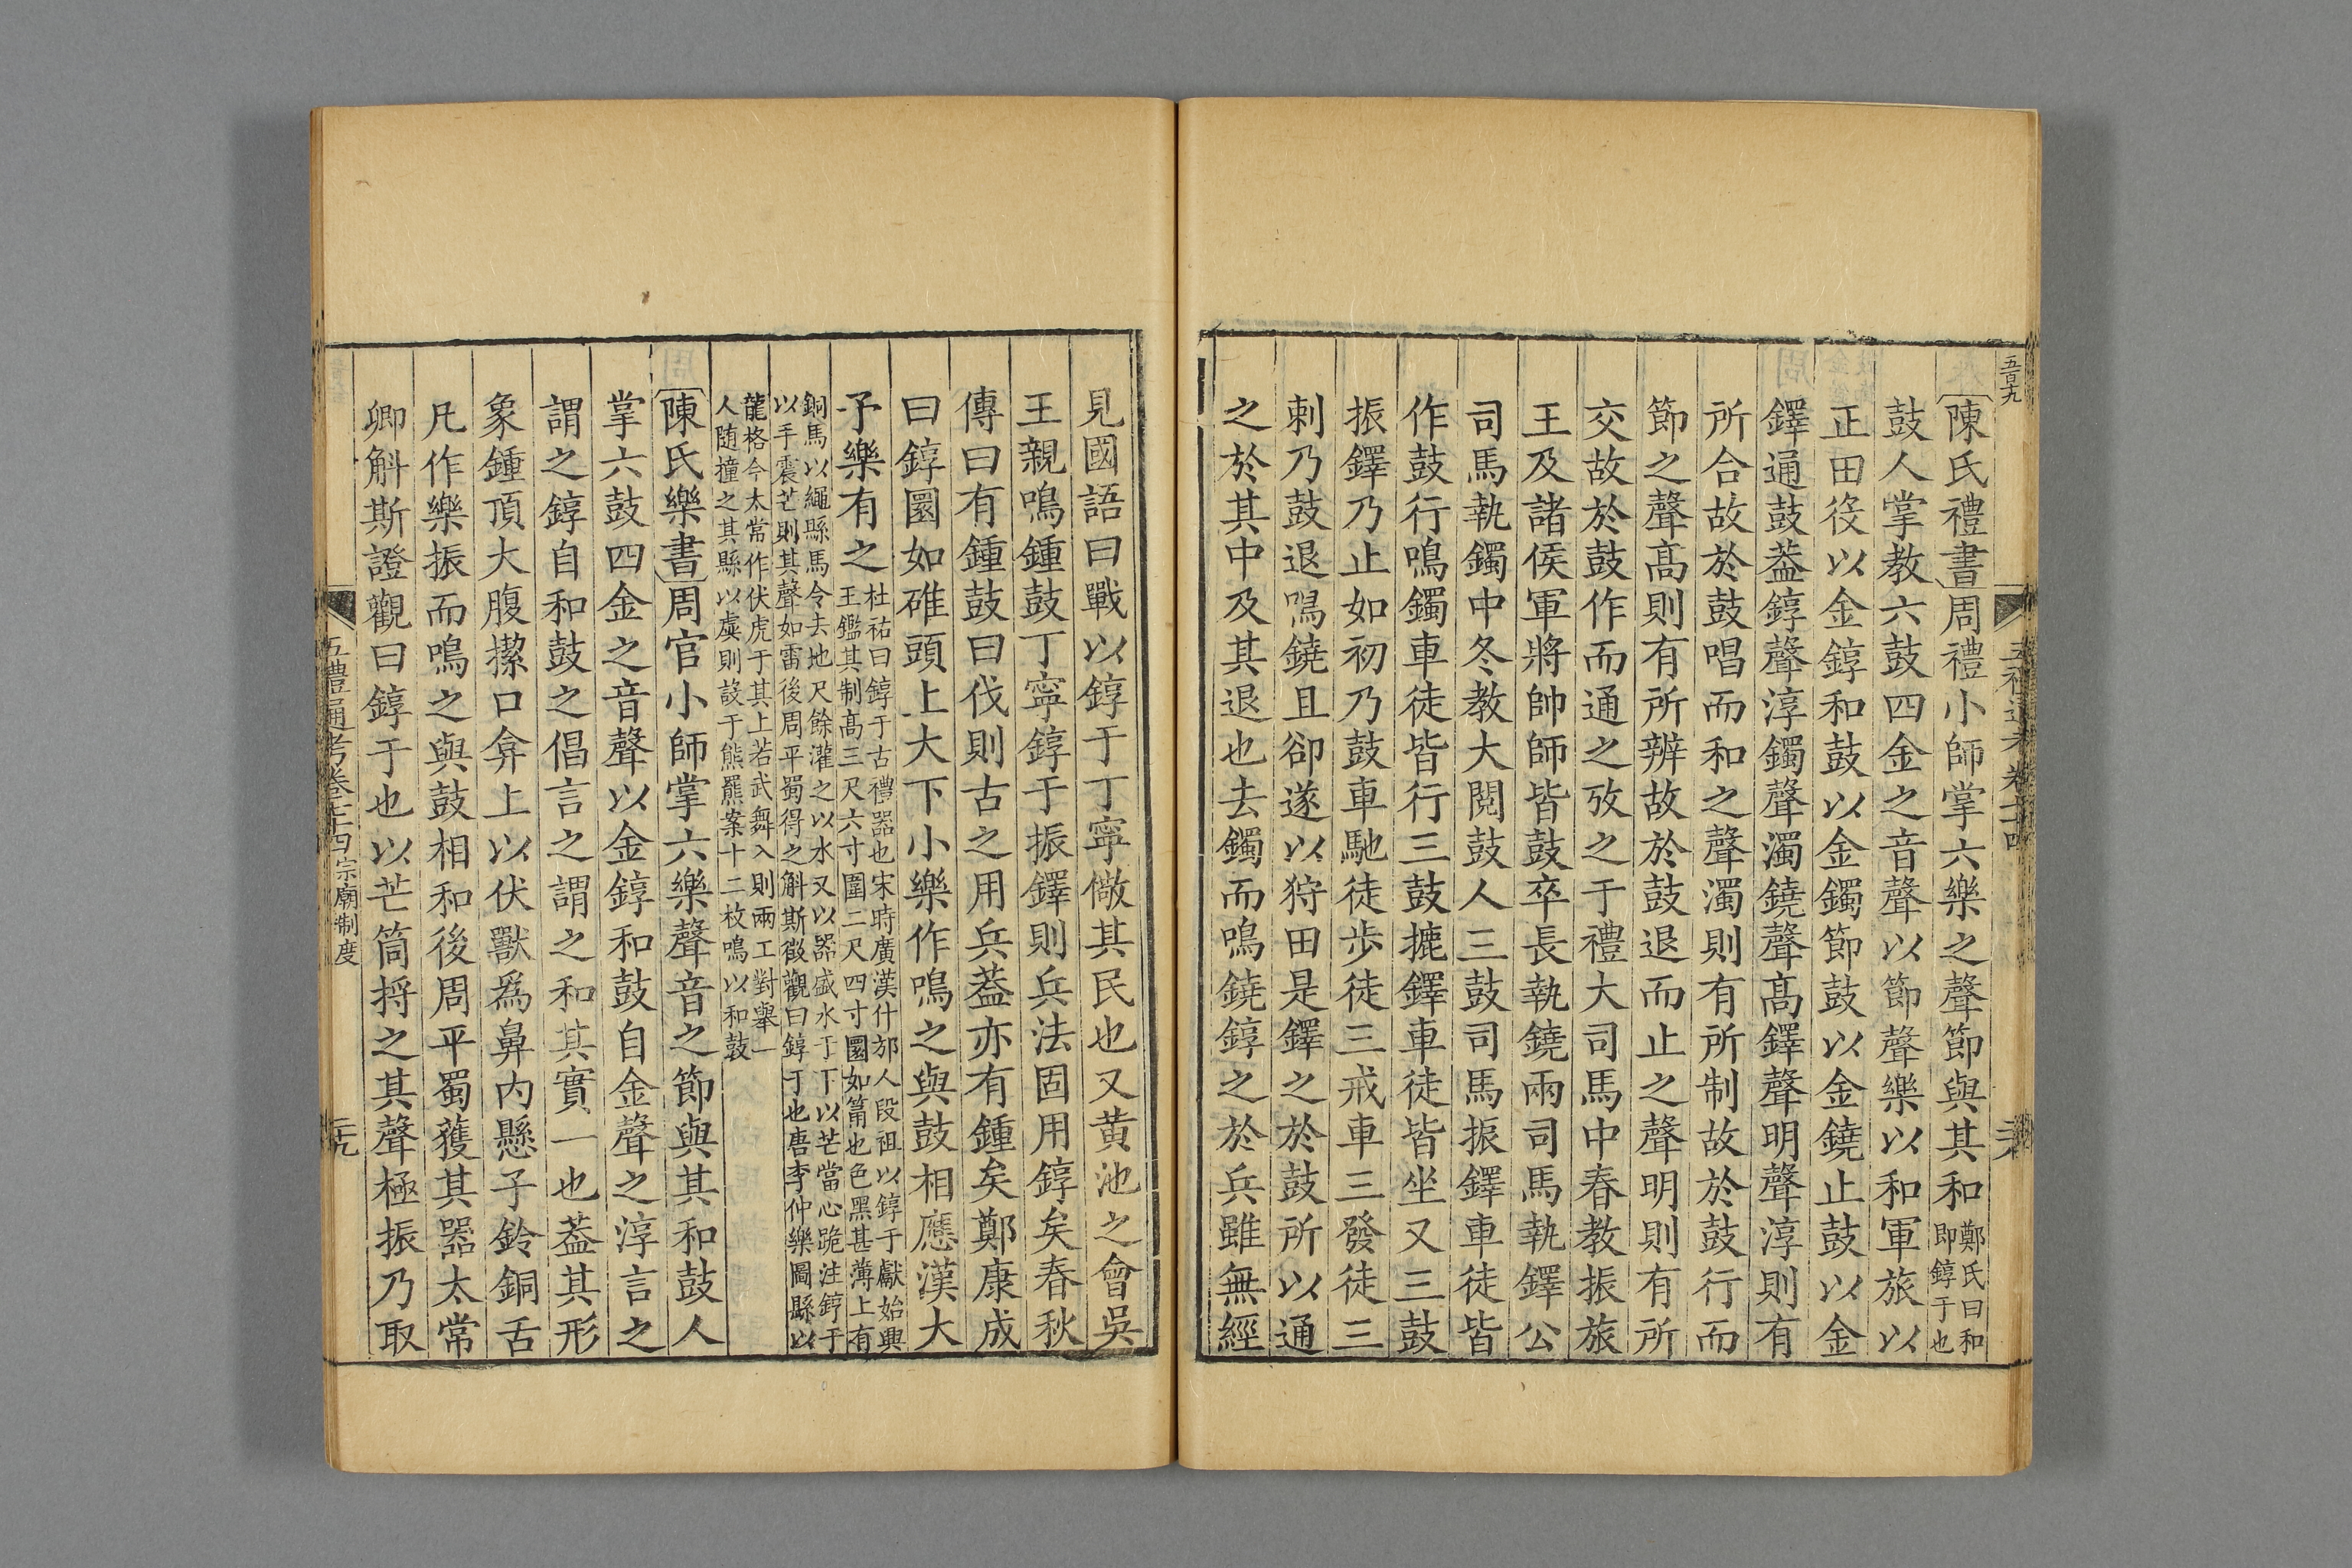 五百九
陳氏禮書周禮小師掌六樂之聲節與其和鄭氏曰和
即錞于也
鼓人掌教六鼓四金之音聲以節聲樂以和軍旅以
正田役以金錞和鼓以金鐲節鼓以金鐃止鼓以金
鐸通鼓葢錞聲淳鐲聲濁鐃聲髙鐸聲明聲淳則有
所合故於鼓唱而和之聲濁則有所制故於鼓行而
節之聲髙則有所辨故於鼓退而止之聲明則有所
交故於鼓作而通之攷之于禮大司馬中春教振旅
王及諸侯軍將帥師皆鼓卒長執鐃兩司馬執鐸公
司馬執鐲中冬教大閱鼓人三鼓司馬振鐸車徒皆
作鼓行鳴鐲車徒皆行三鼓摝鐸車徒皆坐又三鼓
振鐸乃止如初乃鼓車馳徒步徒三戒車三發徒三
刺乃鼓退鳴鐃且卻遂以狩田是鐸之於鼓所以通
之於其中及其退也去鐲而鳴鐃錞之於兵雖無經
見國語曰戰以錞于丁寧儆其民也又黄池之會吳
王親鳴鍾鼓丁寧錞于振鐸則兵法固用錞矣春秋
傳曰有鍾鼓曰伐則古之用兵葢亦有鍾矣鄭康成
曰錞圜如碓頭上大下小樂作鳴之與鼓相應漢大
予樂有之杜祐曰錞于古禮器也宋時廣漢什邡人段祖以錞于獻始興
王鑑其制髙三尺六寸圍二尺四寸圜如筩也色黑甚薄上有
銅馬以繩縣馬令去地尺餘灌之以水又以器盛水于下以芒當心跪注錞于
以手震芒則其聲如雷後周平蜀得之斛斯徵觀曰錞于也唐李仲樂圖縣以
龍格今太常作伏虎于其上若武舞入則兩工對舉一
人随撞之其縣以虡則設于熊羆案十二枚鳴以和鼓
陳氏樂書周官小師掌六樂聲音之節與其和鼓人
掌六鼓四金之音聲以金錞和鼓自金聲之淳言之
謂之錞自和鼓之倡言之謂之和其實一也葢其形
象鍾頂大腹㩦口弇上以伏獸爲鼻内懸子鈴銅舌
凡作樂振而鳴之與鼓相和後周平蜀獲其器太常
卿斛斯證觀曰錞于也以芒筒捋之其聲極振乃取
五禮通考卷七十四宗廟制度
二十九